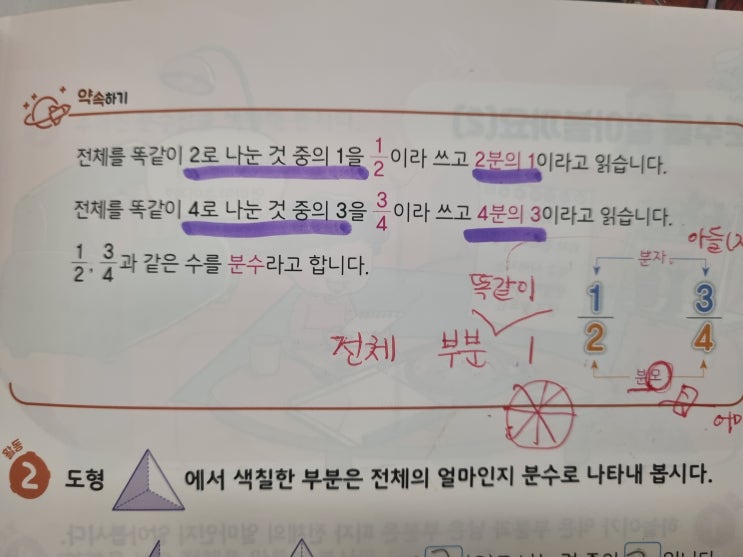 약속하기
전체를 똑같이 2로 나눈 것 중의 1을 1/2이라 쓰고 2분의 1이라고 읽습니다.
전체를 똑같이 4로 나눈 것 중의 3을 3/4이라 쓰고 4분의 3이라고 읽습니다.
1/2, 3/4과 같은 수를 분수라고 합니다.
아들
분자
똑같이
1/2 3/4
전체 부분 1
분모
활동 2 도형 에서 색칠한 부분은 전체의 얼마인지 분수로 나타내 봅시다.